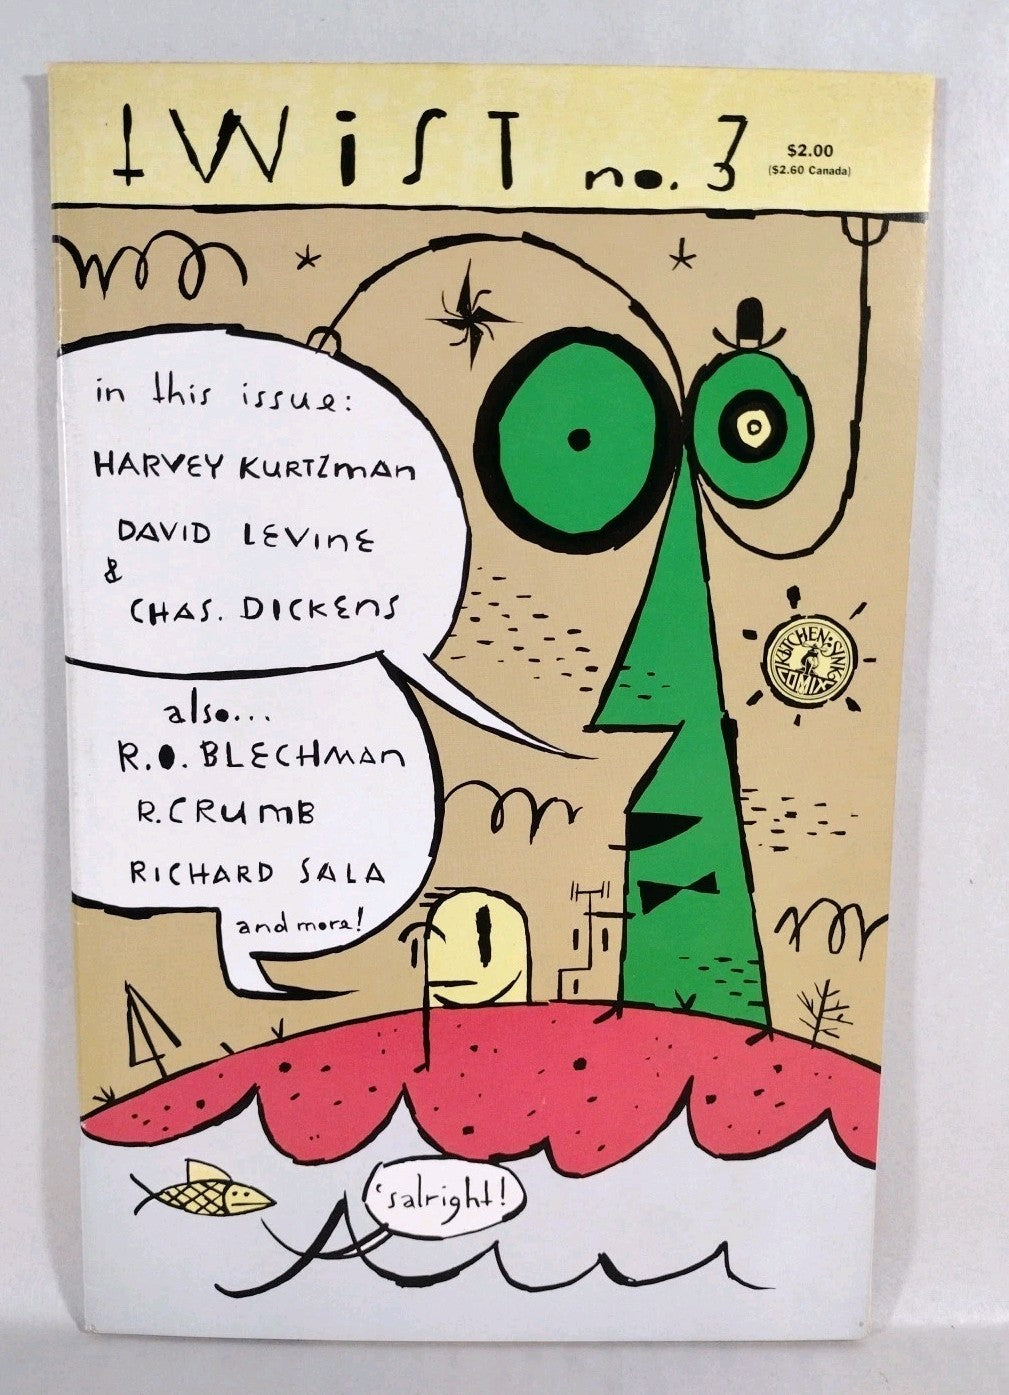 twiST no. 3
$2.00
($2.60 Canada)
in this issue:
HARVEY KURTZmAn
DAVID LEVinE
&
CHAS. DICKEnS
also...
R.O. BLECHmAn
R. CRumB
RICHARD SALA
and more!
KITCHEN SINK
COMIX
'salright!